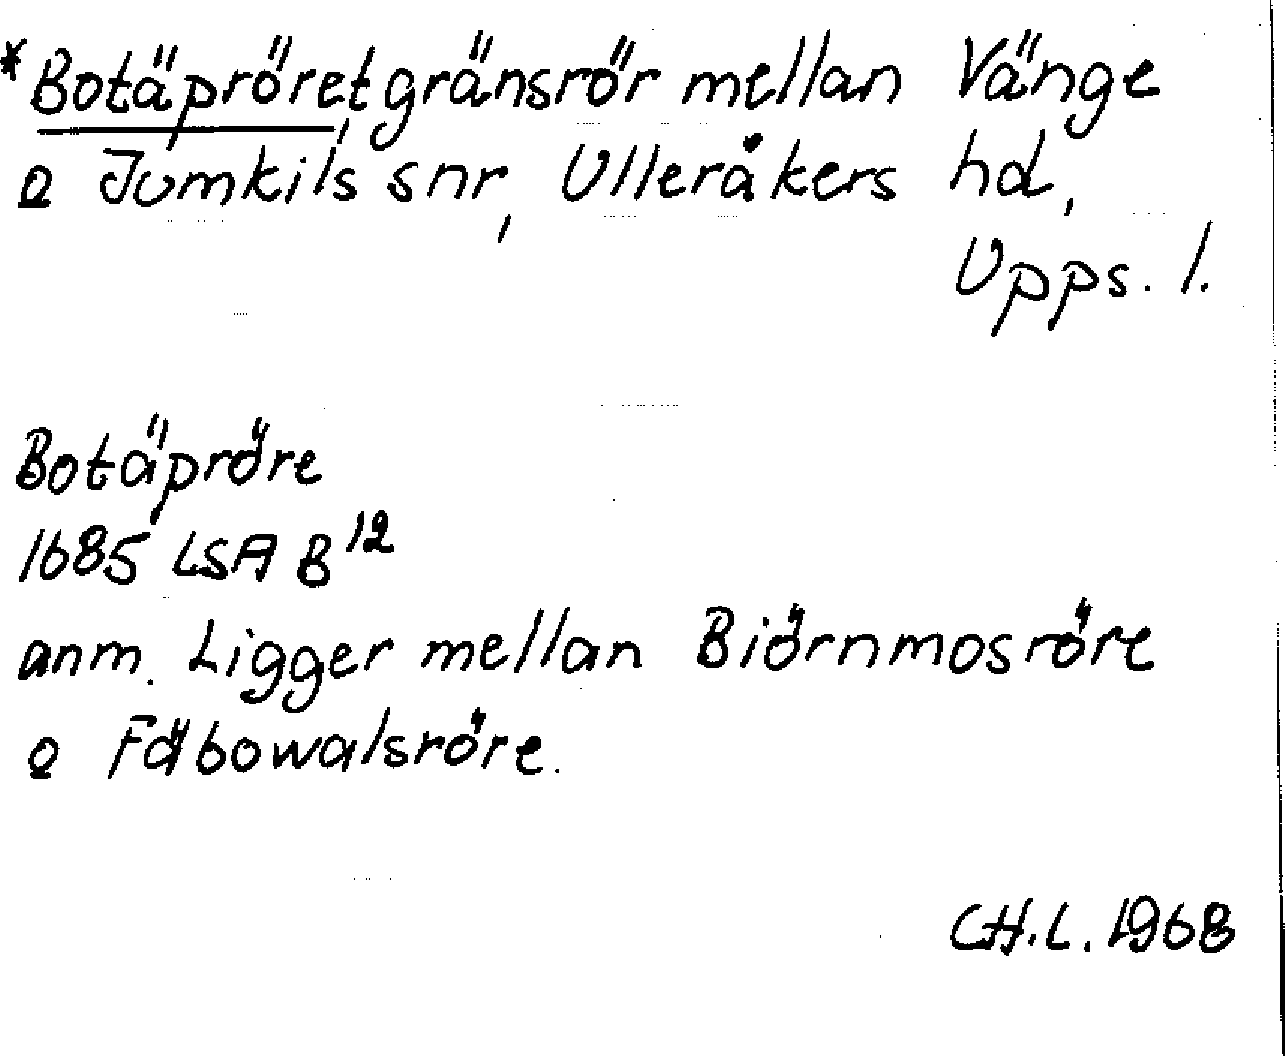 *Botäpröret, gränsrör mellan Vänge
o Jumkils snr, Ulleråkers hd,
Upps. l.
Botäpröre
1685 LSA B12
anm. Ligger mellan Biörnmosröre
o Fäbowalsröre.
CH.L. 1968